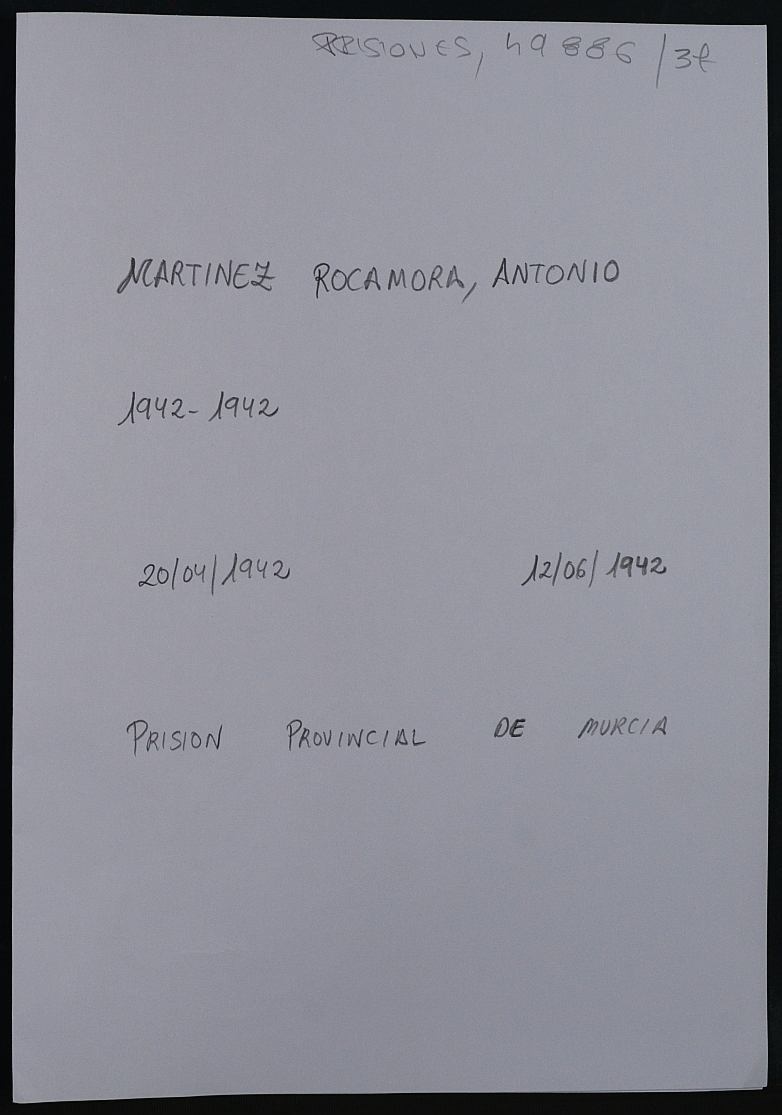 PRISIONES, 49886/37
MARTINEZ ROCAMORA, ANTONIO
1942-1942
20/04/1942 12/06/1942
PRISION PROVINCIAL DE MURCIA